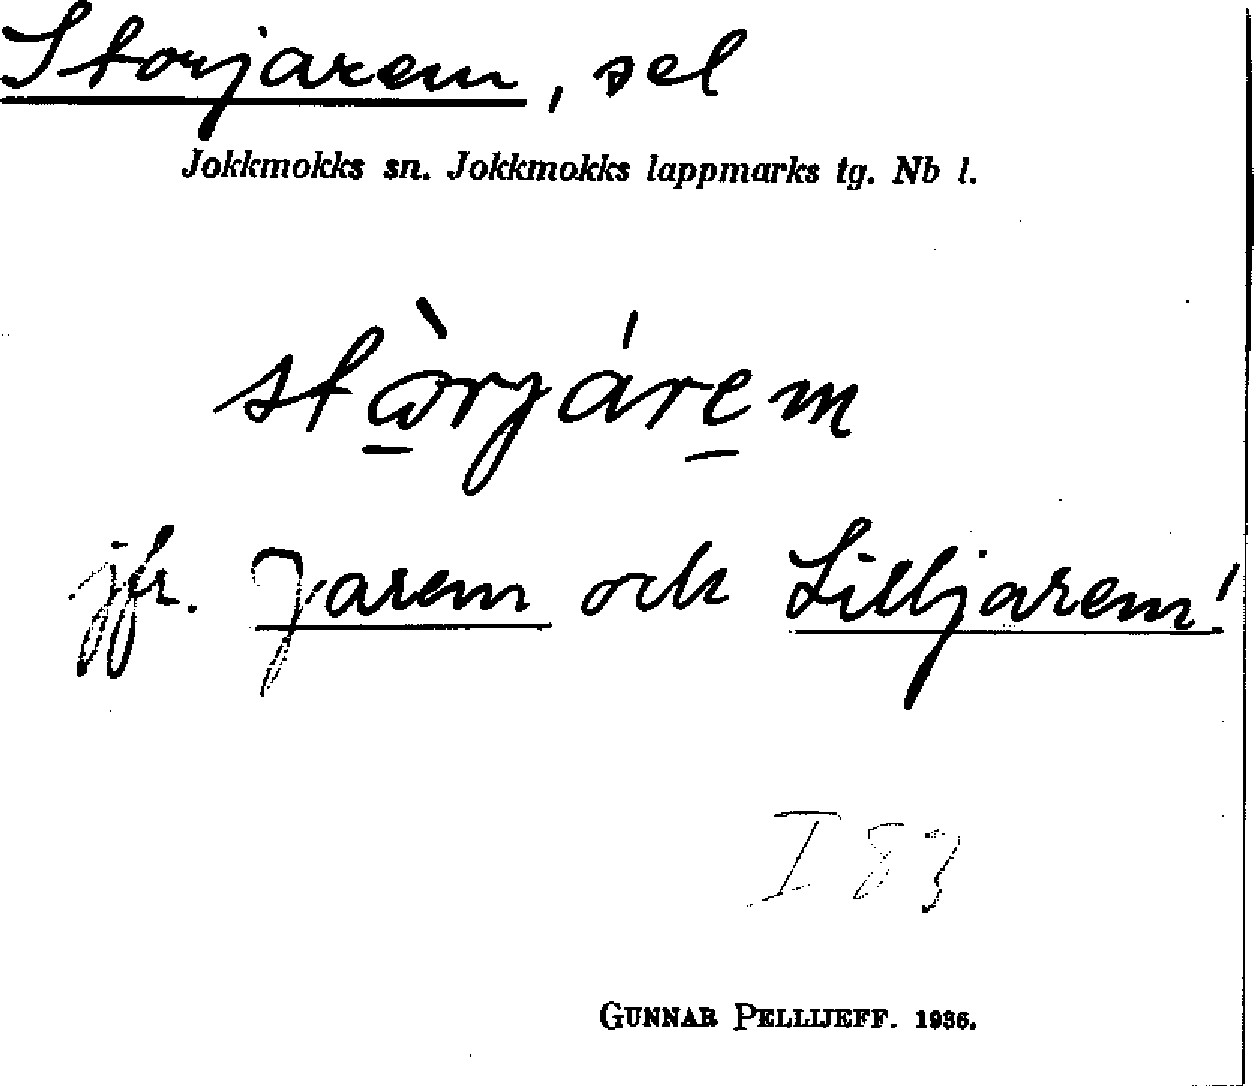 Storjarem, sel
Jokkmokks sn. Jokkmokks lappmarks tg. Nb l.
stòrjárem
jfr. Jarem och Lilljarem!
I 83
GUNNAR PELLIJEFF. 1936.